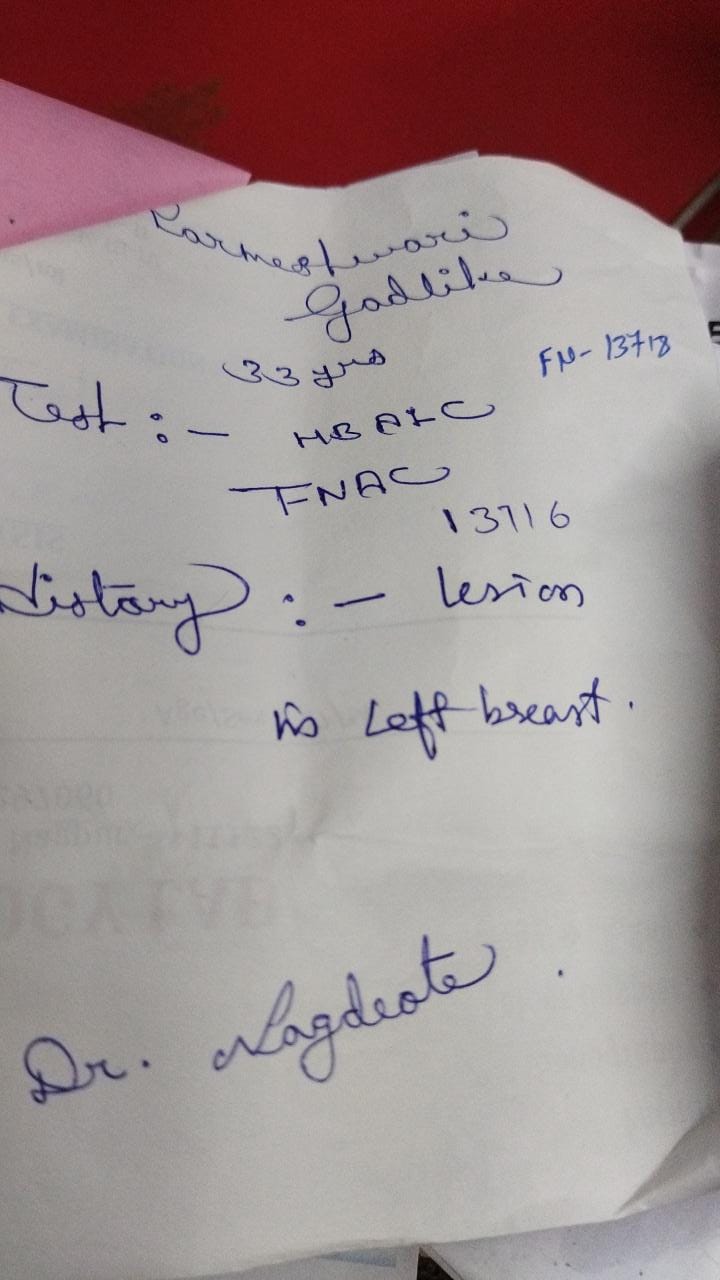 Karmeshwari
Gadlike
33 yrs
FN- 13718
Test :-
HBA1C
FNAC
13716
History :- lesion
in Left breast.
Dr. Nagdeote.